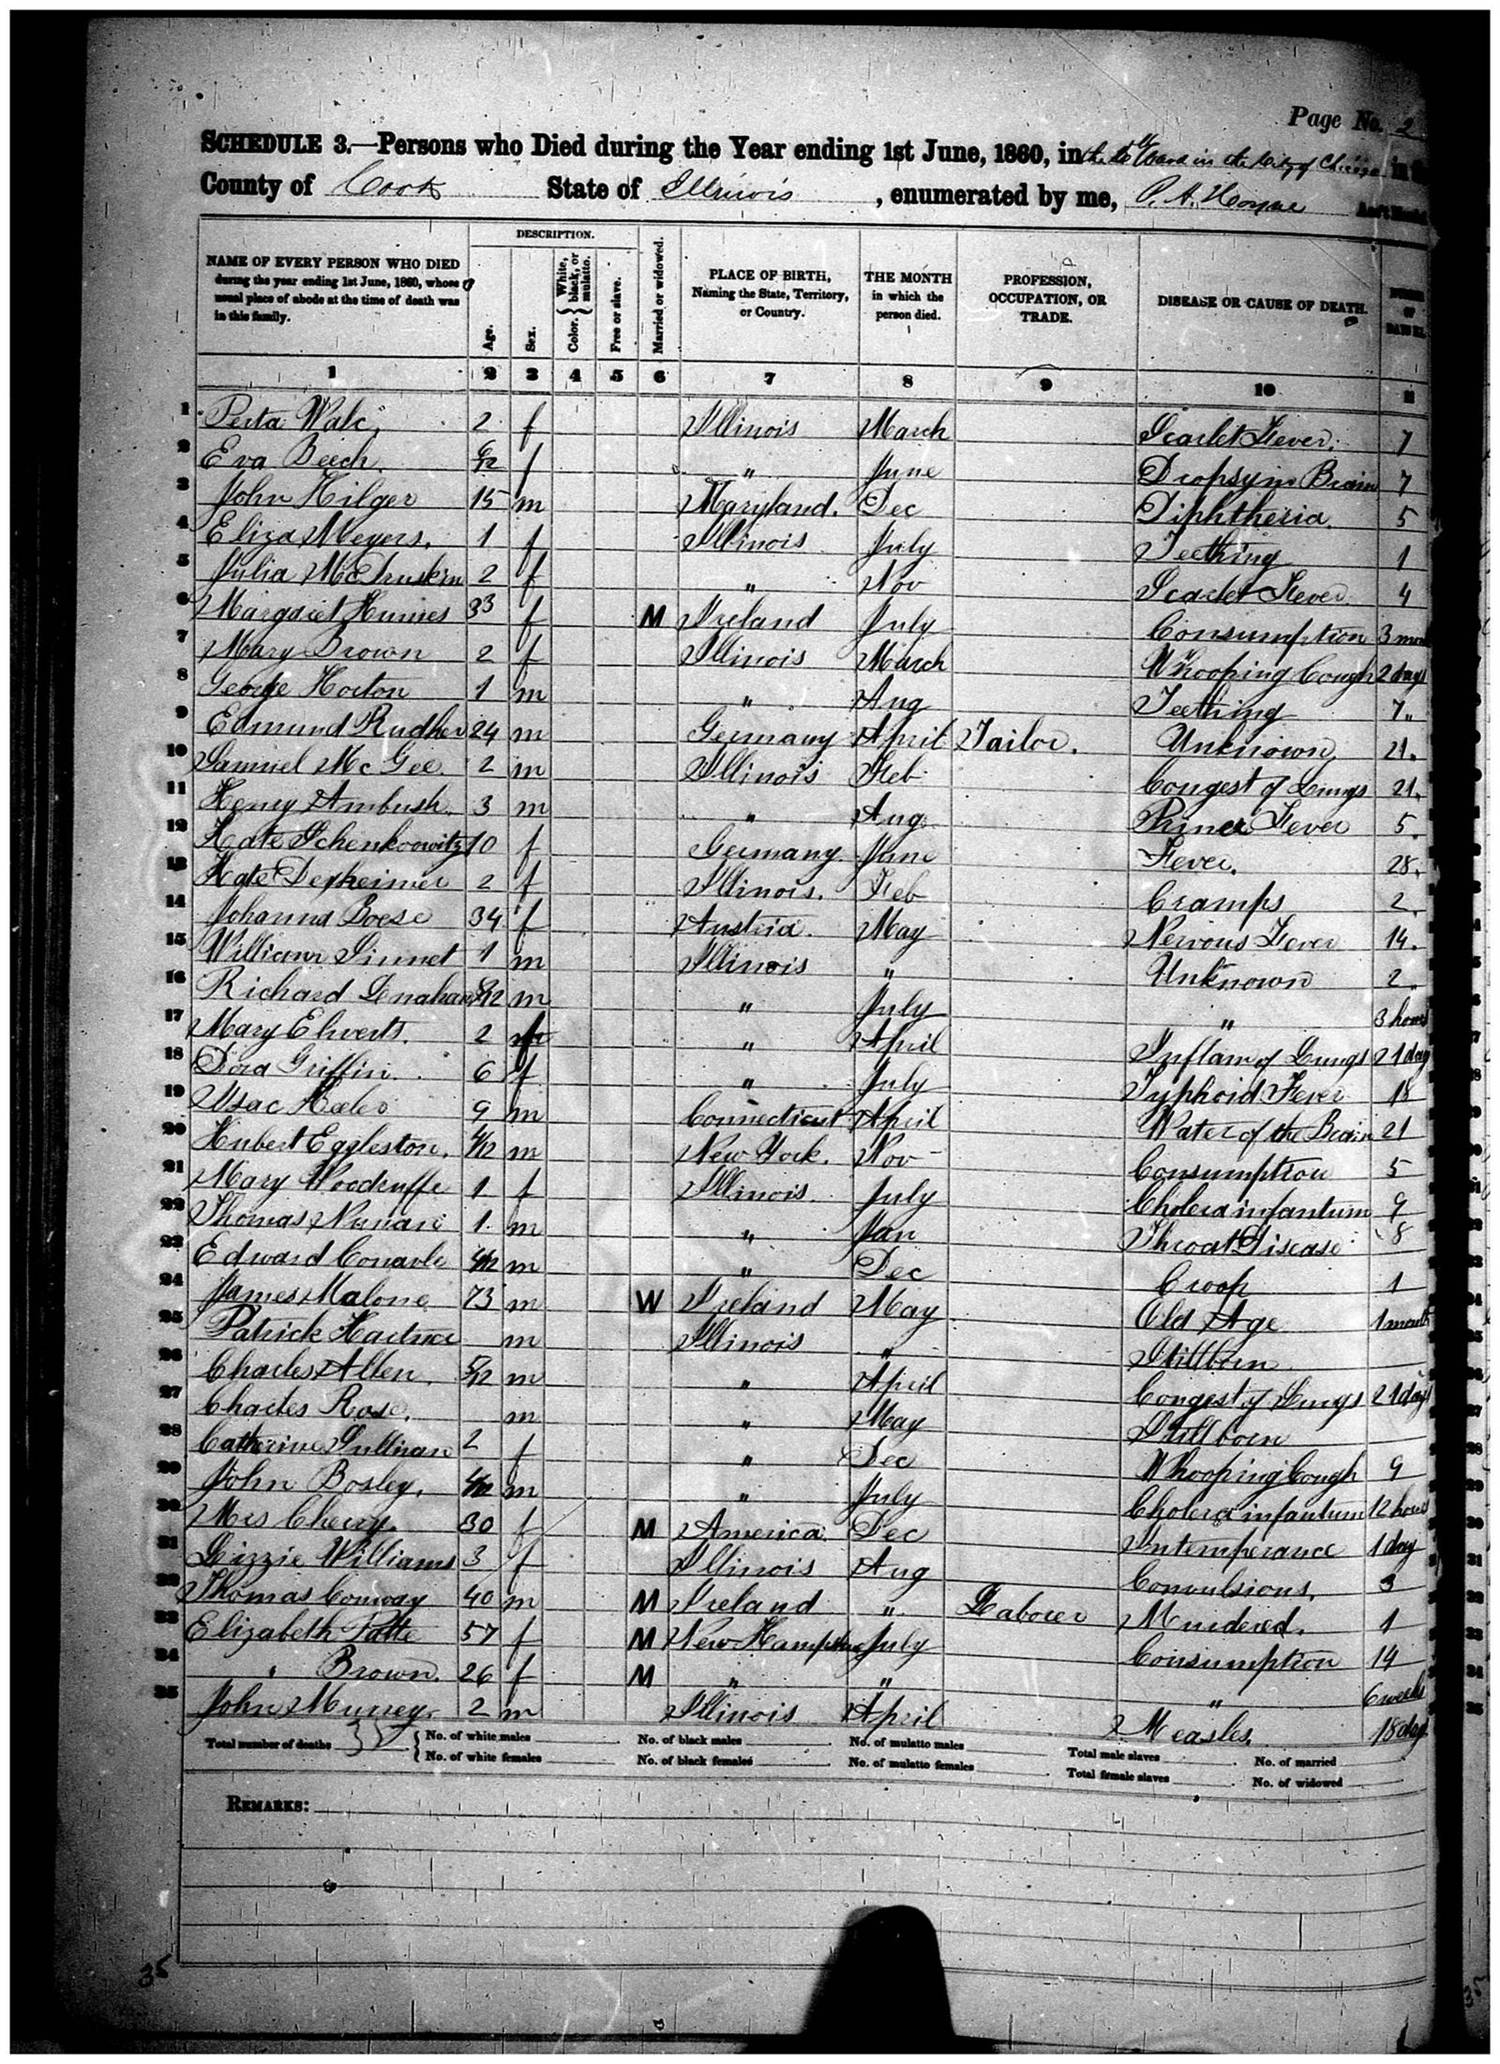 Page No. 2
SCHEDULE 3.—Persons who Died during the Year ending 1st June, 1860, in the Ward in the City of Chicago in
County of Cook State of Illinois, enumerated by me, P. A. Hoyne
DESCRIPTION.
NAME OF EVERY PERSON WHO DIED during the year ending 1st June, 1860, whose usual place of abode at the time of death was in this family.
Age.
Sex.
Color. { White, black, or mulatto.
Free or slave.
Married or widowed.
PLACE OF BIRTH, Naming the State, Territory, or Country.
THE MONTH in which the person died.
PROFESSION, OCCUPATION, OR TRADE.
DISEASE OR CAUSE OF DEATH.
1 2 3 4 5 6 7 8 9 10 11
1 Walc 2 f Illinois March Scarlet Fever. 7
2 Eva Beech. 6/12 f " June Dropsy in Brain 7
3 John Hilger 15 m Maryland. Dec Diphtheria. 5
4 Eliza Meyers. 1 f Illinois July Teething 1
5 Julia 2 f " Nov Scarlet Fever. 4
6 Margaret Humes 33 f M Ireland July Consumption 3
7 Mary Brown 2 f Illinois March Whooping Cough 2 days
8 George Horton 1 m " Aug Teething 7 "
9 Edmund Rudher 24 m Germany April Tailor. Unknown 21.
10 Samuel McGee. 2 m Illinois Feb. Congest of Lungs 21.
11 Henry Ambush. 3 m " Aug. Fever 5.
12 Kate Schenkoowitz 10 f Germany June Fever. 28.
13 Kate Derheimer 2 f Illinois. Feb Cramps 2.
14 Johanna Boese 34 f Austria. May Nervous Fever 14.
15 William Sinnet 1 m Illinois " Unknown 2.
16 Richard Lenahan m " July " 3 hours
17 Mary Elwerts. 2 f " April Inflam of Lungs 21 day
18 Dora Griffin. 6 f " July Typhoid Fever 18
19 Isac 9 m Connecticut April Water of the Brain 21
20 Hubert Eggleston. m New York. Nov Consumption 5
21 Mary Woodruffe 1 f Illinois. July Cholera infantum 9
22 Thomas Nunan 1 m " Jan Throat Disease 8
23 Edward Conavle m " Dec Croop 1
24 James Malone 73 m W Ireland May Old Age 1 month
25 Patrick m Illinois " Stillborn
26 Charles Allen. 5/12 m " April Congest of Lungs 21 days
27 Charles Rose. m " May Stillborn
28 Catherine Sullivan 2 f " Dec Whooping Cough 9
29 John Bosley. m " July Cholera infantum 12 hours
30 Mrs Cherry. 30 f M America. Dec Intemperance 1 day
31 Lizzie Williams 3 f Illinois Aug Convulsions. 3
32 Thomas Conway 40 m M Ireland " Laborer Murdered. 1
33 Elizabeth Patte 57 f M New Hampshire July Consumption 14
34 " Brown. 26 f M " " " 6 weeks
35 John Murrey. 2 m Illinois April Measles. 18 day
Total number of deaths 35 { No. of white males No. of black males No. of mulatto males Total male slaves No. of married
No. of white females No. of black females No. of mulatto females Total female slaves No. of widowed
REMARKS:
35